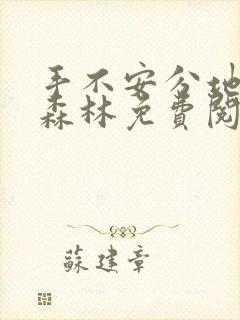 手不安分地
森林免费閱
蘇建章